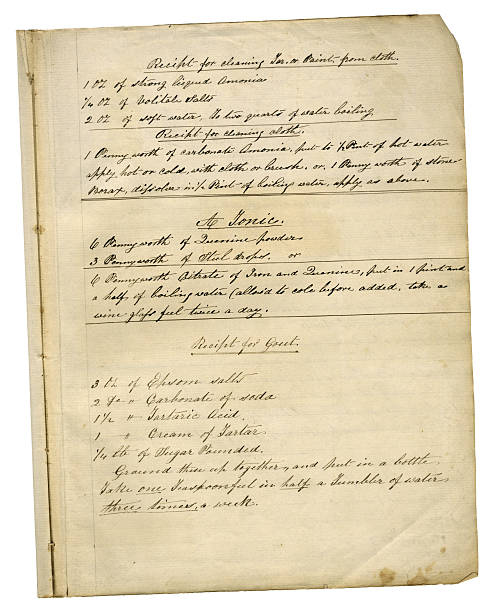 Recipt for cleaning Tar. or Paint, from cloth.
1 Oz of strong liequd Amonia
¼ Oz of Volitale Salts
2 Oz of soft water, To two quarts of water boiling
Recipt for cleaning cloth.
1 Penny worth of carbonate Amonia, put to ½ Pint of hot water
apply hot or cold, with cloth or brush. or, 1 Penny worth of stone
Borax, dissolve in ½ Pint of boiling water, apply as above.
A Tonic.
6 Pennyworth of Quenine powders
3 Pennyworth of Steel drops. or
6 Pennyworth Citrate of Iron and Quenine, put in 1 pint and
a half of boiling water (allow'd to cole before added. take a
wine glass ful twice a day.
Recipt for Gout.
3 Oz of Epsom salts
2 do " Carbonate of soda
1½ " Tartaric Acid.
1 " Cream of Tartar
¼ lb of Sugar Pounded.
Ground thees up together, and put in a bottle
Take one Teaspoonful in half a Tumbler of water
three times, a week.